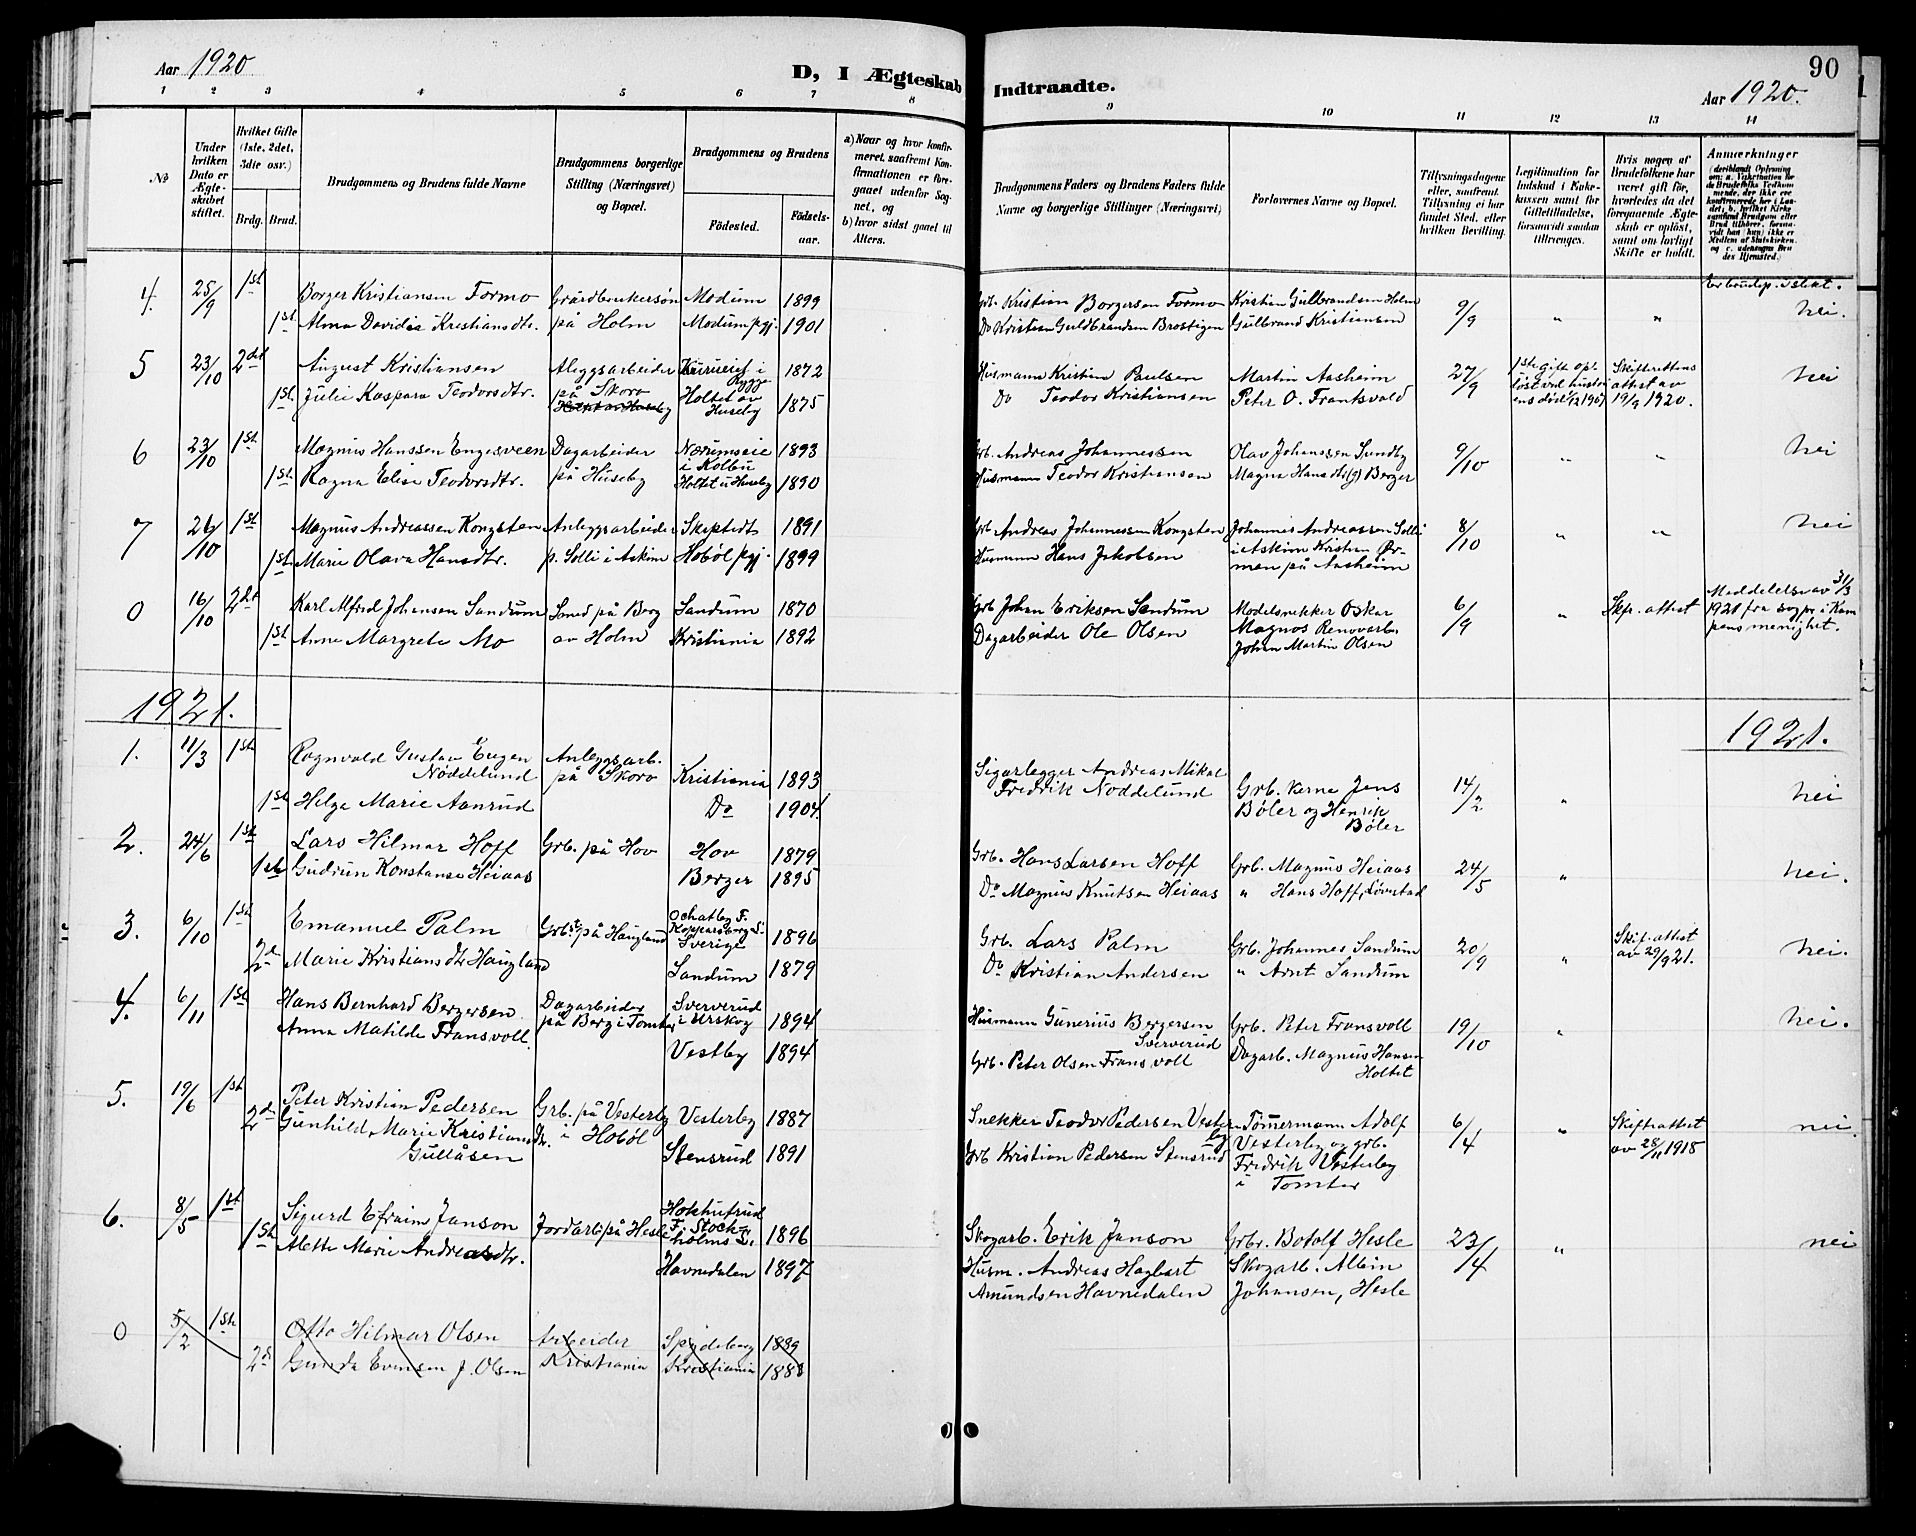 Aar 1920
D, I Ægteskab Indtraadte.
Aar 1920.
90
1 2 3 4 5 6 7 8 9 10 11 12 13 14
No
Under hvilken Dato er Ægteskabet stiftet.
Hvilket Gifte (1ste, 2det, 3die osv.)
Brdg. Brud.
Brudgommens og Brudens fulde Navne
Brudgommens borgerlige Stilling (Næringsvei) og Bopæl.
Brudgommens og Brudens
Fødested.
Fødselsaar.
a) Naar og hvor konfirmeret, saafremt Konfirmationen er foregaaet udenfor Sognet, og
b) hvor sidst gaaet til Alters.
Brudgommens Faders og Brudens Faders fulde Navne og borgerlige Stillinger (Næringsvei)
Forlovernes Navne og Bopæl.
Tillysningsdagene eller, saafremt Tillysning ei har fundet Sted, efter hvilken Bevilling.
Legitimation for Indskud i Enkekassen samt for Giftetilladelse, forsaavidt saadan tiltrænges.
Hvis nogen af Brudefolkene har været gift før, hvorledes da det foregaaende Ægteskab er opløst, samt om lovligt Skifte er holdt.
Anmærkninger
4. 25/9 1st Borger Kristiansen Formo Gårdbrukersøn Modum 1899 Grb. Kristian Borgersen Formo Kristian Gulbrandsen Holm 9/9 " " nei.
1st Alma Davidia Kristiansdtr. på Holm Modum pgj. 1901 Do Kristian Guldbrandsen Brostigen Gulbrand Kristiansen
5 23/10 2det August Kristiansen Anleggsarbeider i Rygge 1872 Husmann Kristian Paulsen Martin Aasheim 27/9 Skifterettens attest av 19/9 1920. nei
1st Julie Kaspara Teodorsdtr. på Skoro Holtet av Huseby 1875 Do Teodor Kristiansen Peter O. Fransvold
6 23/10 1st Magnus Hanssen Engesveen Dagarbeider Nærumseie i Kolbu 1893 Grb. Andreas Johannessen Olav Johanssen Sundby 9/10 " " nei
1st Ragna Elise Teodorsdtr. på Huseby Holtet u Huseby 1890 Husmann Teodor Kristiansen Magna Hansdtr (g) Berger
7 26/10 1st Magnus Andreassen Kongsten Anleggsarbeider Skiptvedt 1891 Grb. Andreas Johannessen Kongsten Johannes Andreassen Solli 8/10 " " nei
1st Marie Olava Hansdtr. p. Solli i Askim Hobøl pgj. 1899 Husmann Hans Jakobsen i Askim Kristian Ørman på Aasheim
0 16/10 2det Karl Alfred Johansen Sandum Smed på Berg Sandum 1870 Grb Johan Eriksen Sandum Modelsnekker Oskar 6/9 " Skp. attest Meddelelse av 31/3
1st Anne Margrete Mo av Holm Kristiania 1892 Dagarbeider Ole Olsen Magnos Renovarb. Johan Martin Olsen 1921 fra sogpr. i Kampens menighet.
1921.
1921.
1. 11/3 1st Ragnvald Gustav Eugen Nøddelund Anleggsarb. på Skoro Kristiania 1893 Sigarlegger Andreas Mikal Fredrik Nøddelund Grb. Jens 14/2 " nei
1st Helga Marie Aanrud Do 1904 Bøler og Henrik Bøler
2. 24/6 1st Lars Hilmar Hoff Grb. på Hov Hov 1879 Grb. Hans Larsen Hoff Grb. Magnus Heiaas 24/5 " nei.
1st Gudrun Konstanse Heiaas Berger 1895 Do Magnus Knutsen Heiaas " Hans Hoff, Løvestad
3. 6/10 1st Emanuel Palm Grbst. på Haugland Kopparsbergs L. Sverige 1896 Grb. Lars Palm Grb. Johannes Sandum 20/9 " Skif. attest av 29/9 21. nei.
2d Marie Kristiansdtr Haugland Sandum 1879 Do Kristian Andersen " Arnt Sandum
4. 6/11 1st Hans Bernhard Bergersen Dagarbeider Sververud i Urskog 1894 Husmann Gunerius Bergersen Sververud Grb. Peter Fransvoll 19/10 " nei.
Anna Matilde Fransvoll. på Berg i Tomter Vestby 1894 Grb. Peter Olsen Fransvoll Dagarb. Magnus Hansen Holtet
5. 19/6 1st Peter Kristian Pedersen Grb. på Vesterby Vesterby 1887 Snekker Teodor Pedersen Vesterby Tømmermann Adolf 6/4 " Skifteattest av 28/11 1918 nei.
2d Gunhild Marie Kristiansdtr. Gullåsen i Hobøl Stensrud 1891 Grb Kristian Pedersen Stensrud Vesterby og grb. Fredrik Vesterby i Tomter
6. 8/5 1st Sigurd Efraim Janson Jordarb på Hesle F. Stockholms L. 1896 Skogarb. Erik Janson Grbr. Botolf Hesle 23/4 " nei
1st Alette Marie Andreasdtr. Havnedalen 1897 Husm. Andreas Hagbart Amundsen Havnedalen Skogarb. Albin Johansen, Hesle
0 5/2 1st Otto Hilmar Olsen Arbeider Spydeberg 1889
2d Gunda Evensen f. Olsen Kristiania Kristiania 1888